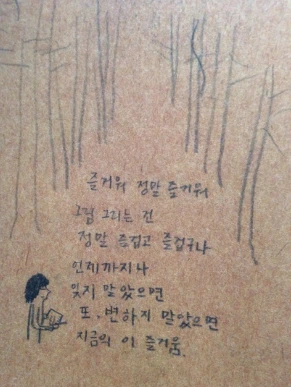 즐거워 정말 즐거워
그림 그리는 건
정말 즐겁고 즐겁구나
언제까지나
잊지 말았으면
또, 변하지 말았으면
지금의 이 즐거움.